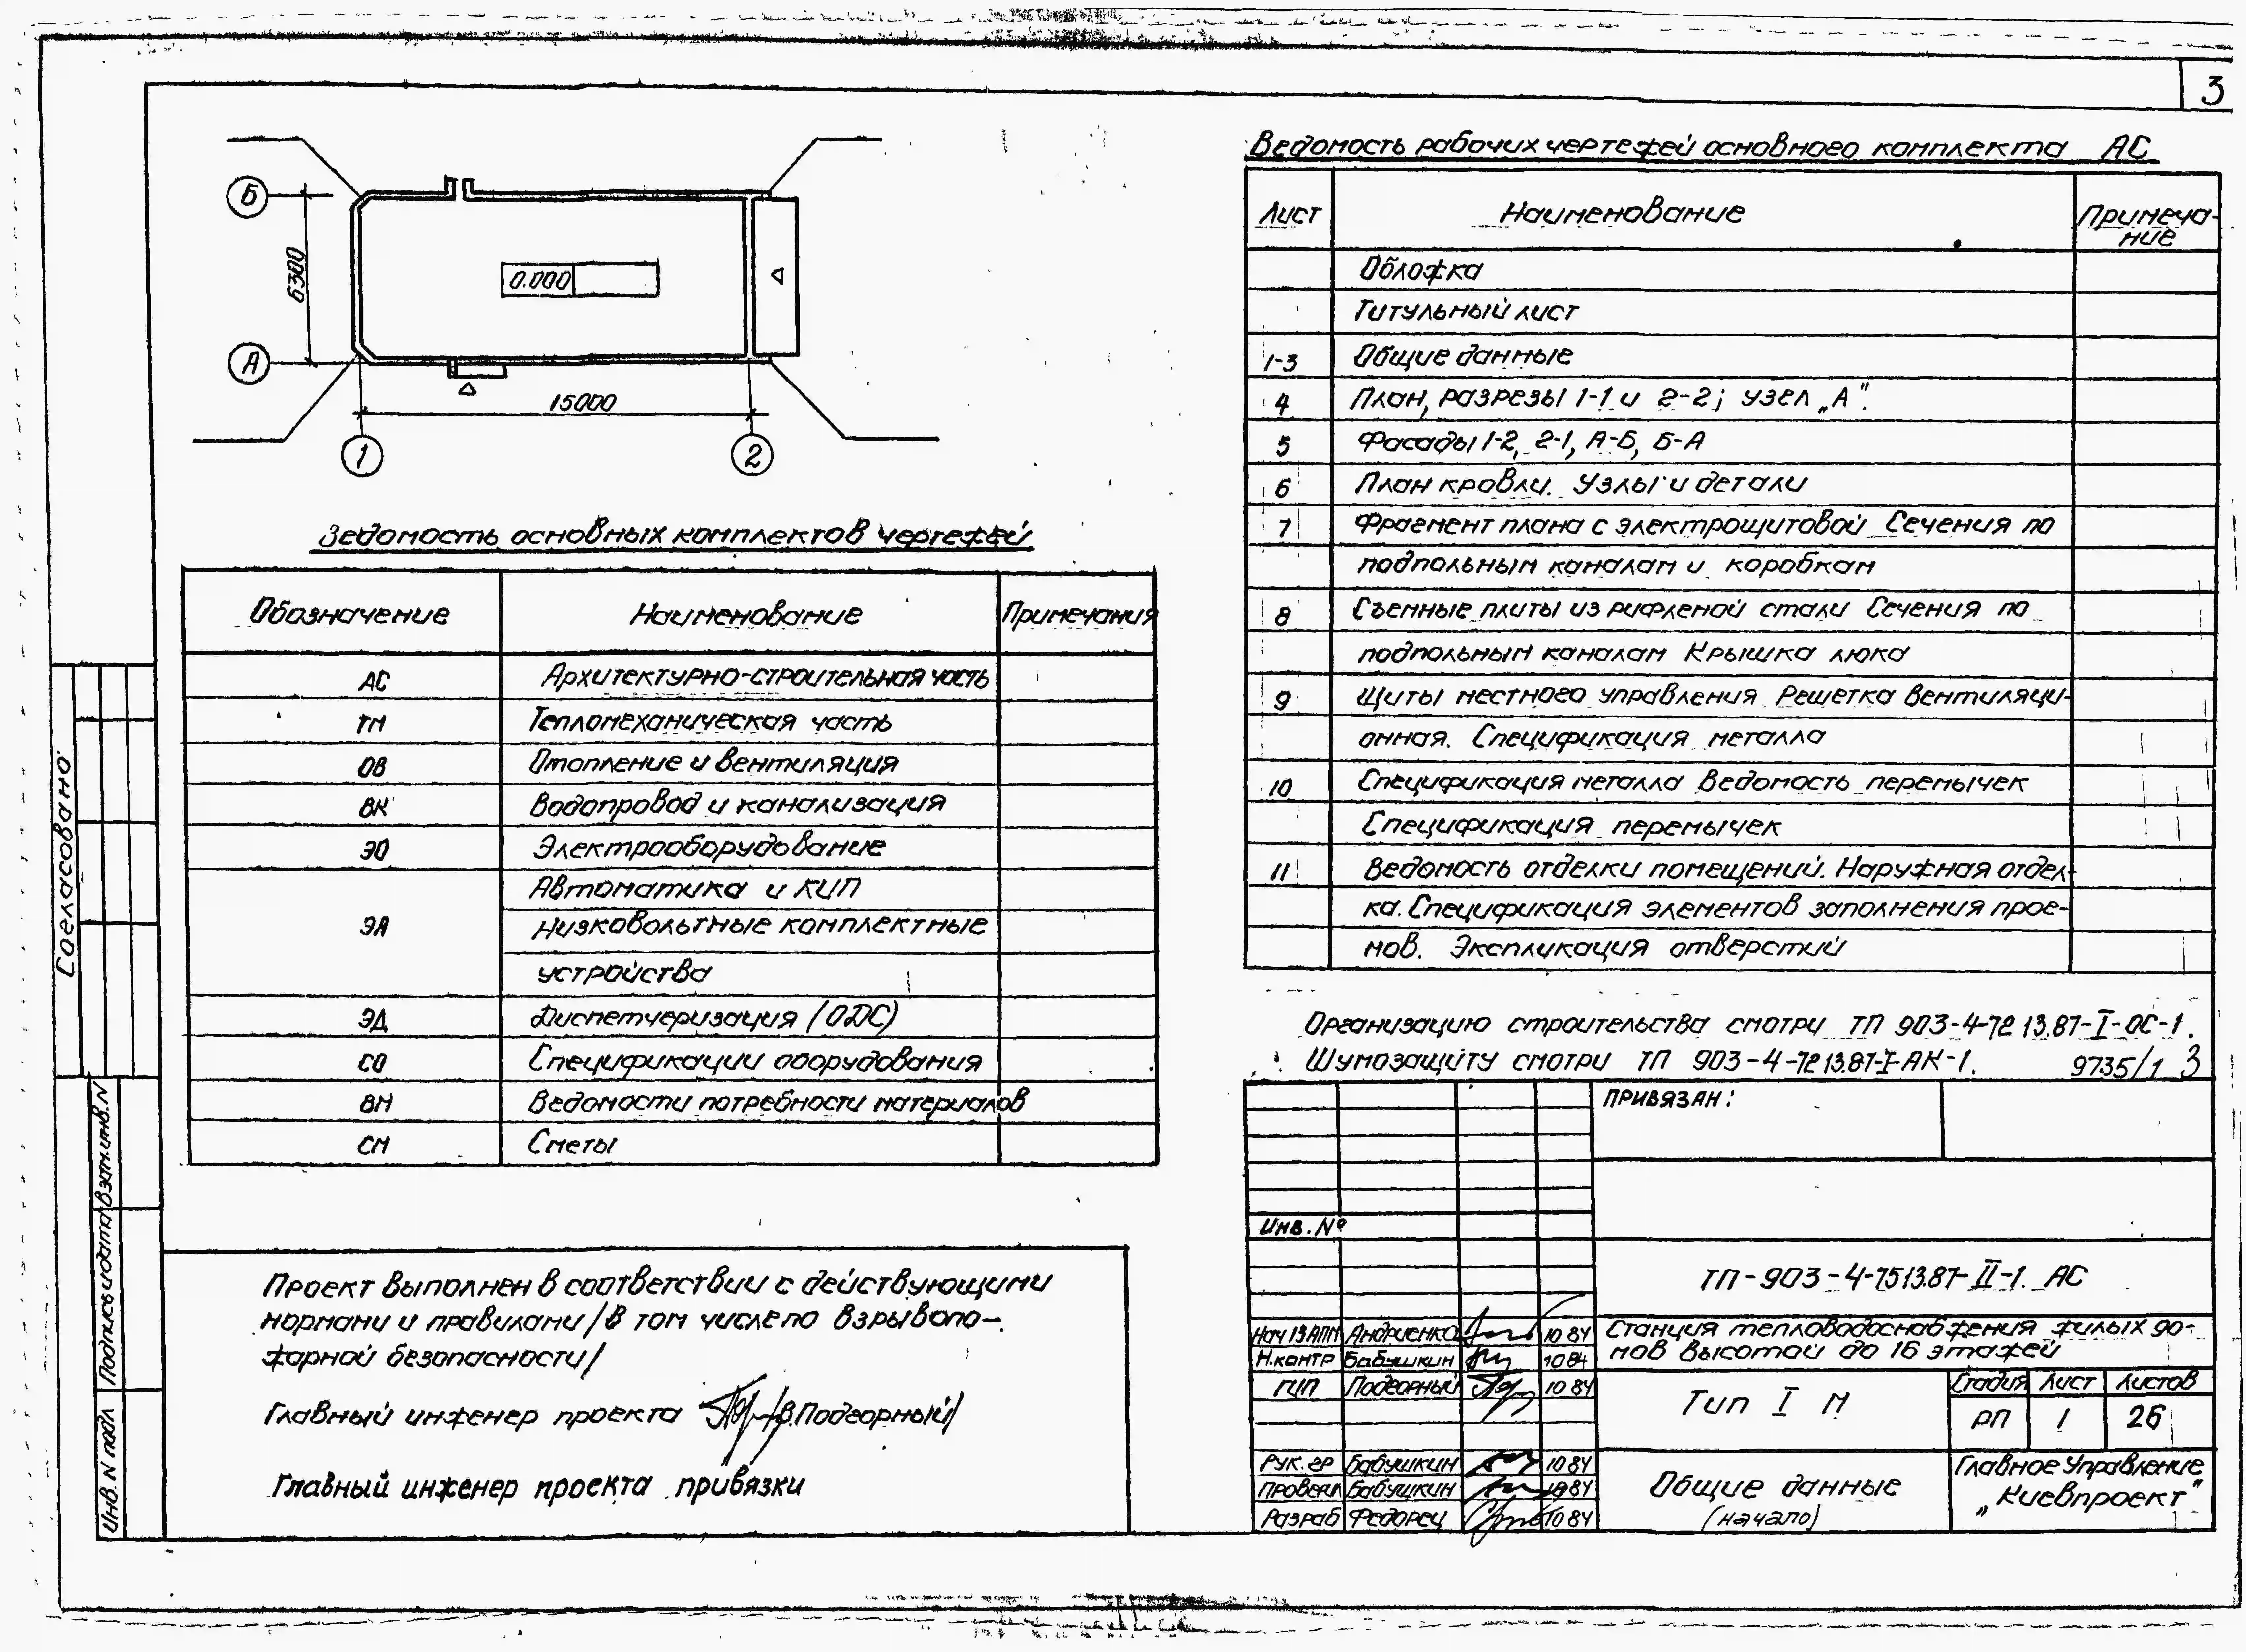 3
Б
6300
0.000
А
15000
1
2
Ведомость основных комплектов чертежей
Обозначение Наименование Примечания
АС Архитектурно-строительная часть
ТМ Тепломеханическая часть
ОВ Отопление и вентиляция
ВК Водопровод и канализация
ЭО Электрооборудование
Автоматика и КИП
ЭА Низковольтные комплектные
устройства
ЭД Диспетчеризация (ОДС)
СО Спецификации оборудования
ВМ Ведомости потребности материалов
СМ Сметы
Проект выполнен в соответствии с действующими
нормами и правилами /в том числе по взрывопо-
жарной безопасности/
Главный инженер проекта /В.Подгорный/
Главный инженер проекта привязки
Согласовано
Взам.инв.N
Подпись и дата
Инв. N подл
Ведомость рабочих чертежей основного комплекта АС
Лист Наименование Примеча-
ние
Обложка
Титульный лист
1-3 Общие данные
4 План, разрезы 1-1 и 2-2; узел „А".
5 Фасады 1-2, 2-1, А-Б, Б-А
6 План кровли. Узлы и детали
7 Фрагмент плана с электрощитовой Сечения по
подпольным каналам и коробкам
8 Съемные плиты из рифленой стали Сечения по
подпольным каналам Крышка люка
9 Щиты местного управления Решетка вентиляци-
онная. Спецификация металла
10 Спецификация металла Ведомость перемычек
Спецификация перемычек
11 Ведомость отделки помещений. Наружная отдел-
ка. Спецификация элементов заполнения прое-
мов. Экспликация отверстий
Организацию строительства смотри ТП 903-4-72 13.87-I-ОС-1.
Шумозащиту смотри ТП 903-4-72 13.87-I-АК-1. 9735/1 3
ПРИВЯЗАН:
Инв. №
ТП-903-4-75 13.87-II-1. АС
Нач 13АПМ Андриенко 10 84
Н.контр Бабушкин 10 84
ГИП Подгорный 10 84
Рук. гр Бабушкин 10 84
Провери Бабушкин 10 84
Разраб Федорец 10 84
Станция тепловодоснабжения жилых до-
мов высотой до 16 этажей
Тип I М
Стадия Лист Листов
РП 1 26
Общие данные
(начало)
Главное Управление
„Киевпроект"